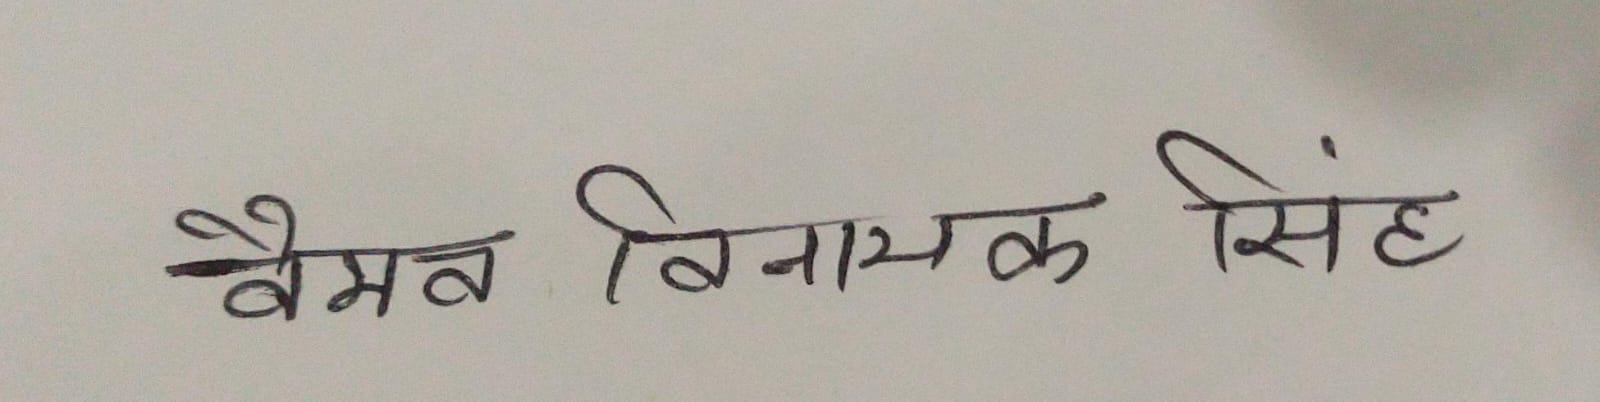 वैभव विनायक सिंह